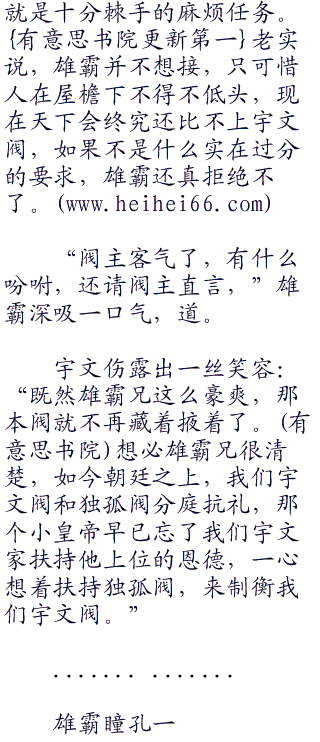 就是十分棘手的麻烦任务。
{有意思书院更新第一}老实
说，雄霸并不想接，只可惜
人在屋檐下不得不低头，现
在天下会终究还比不上宇文
阀，如果不是什么实在过分
的要求，雄霸还真拒绝不
了。(www.heihei66.com)
“阀主客气了，有什么
吩咐，还请阀主直言，”雄
霸深吸一口气，道。
宇文伤露出一丝笑容：
“既然雄霸兄这么豪爽，那
本阀就不再藏着掖着了。(有
意思书院)想必雄霸兄很清
楚，如今朝廷之上，我们宇
文阀和独孤阀分庭抗礼，那
个小皇帝早已忘了我们宇文
家扶持他上位的恩德，一心
想着扶持独孤阀，来制衡我
们宇文阀。”
....... .......
雄霸瞳孔一